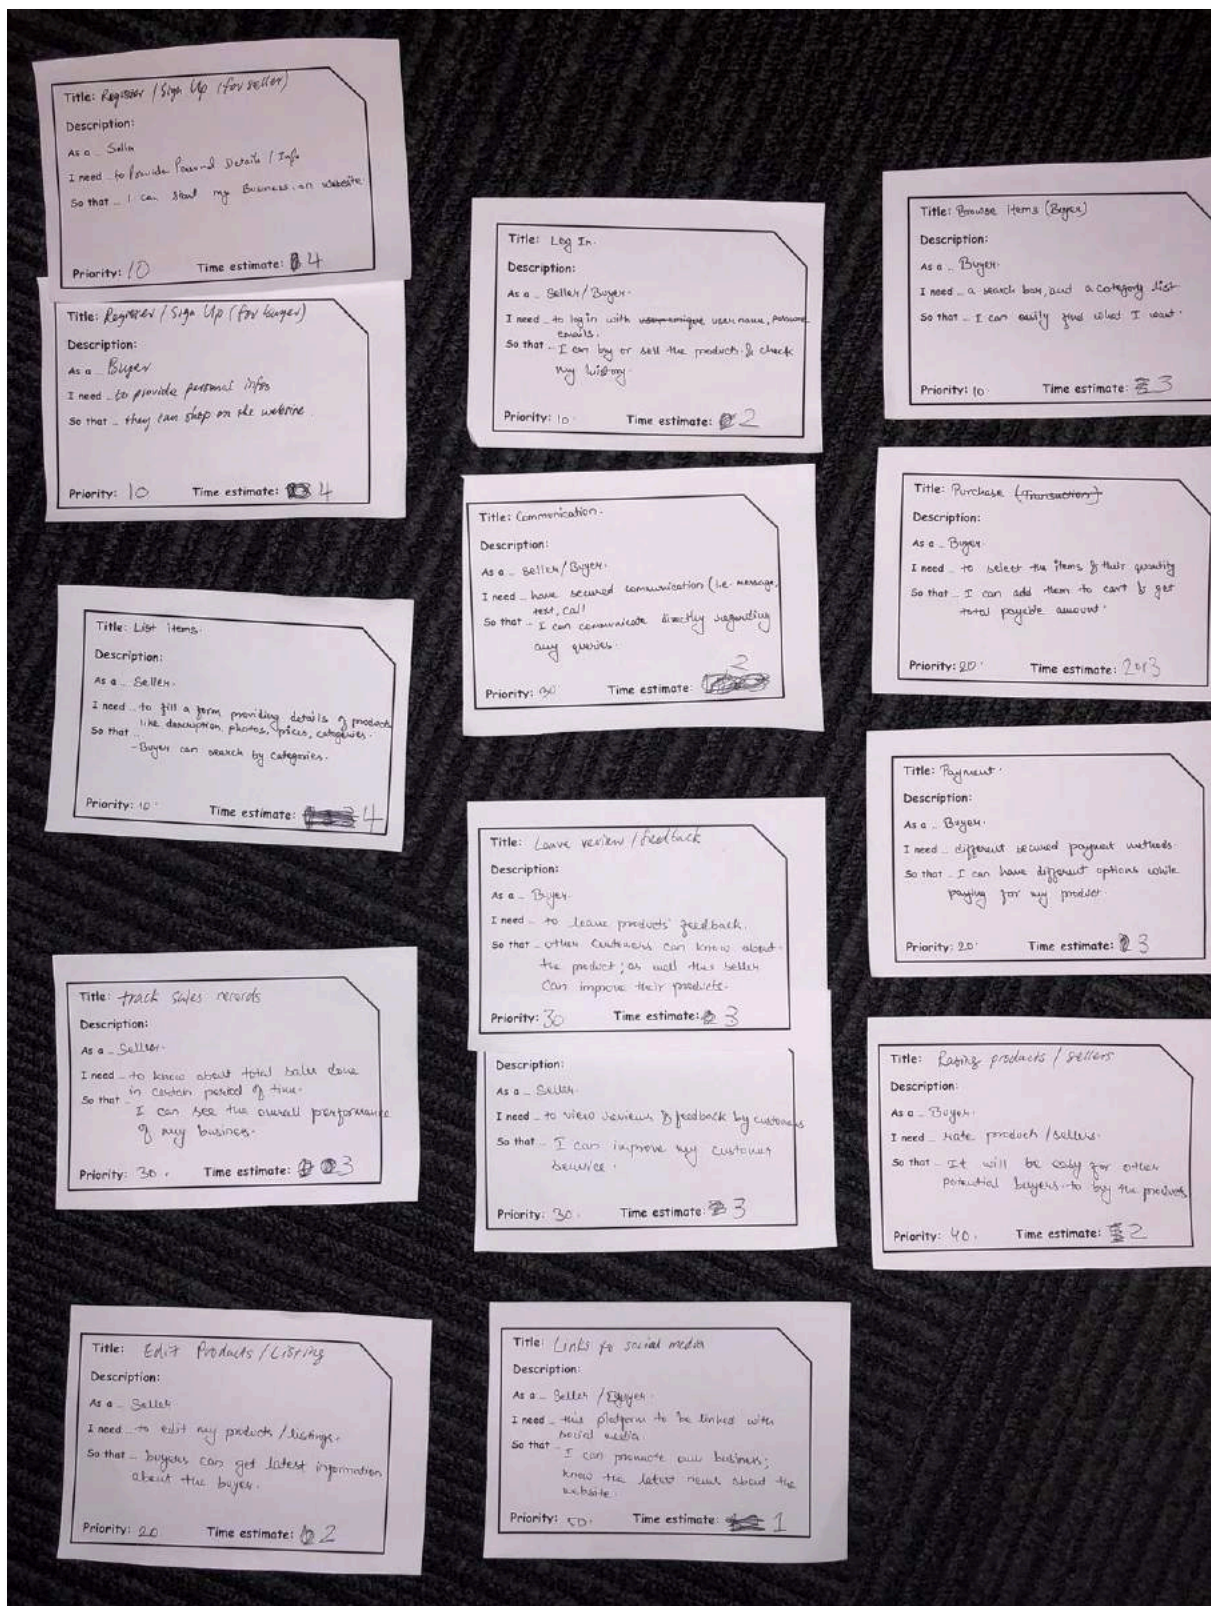 Title: Register / Sign Up (for seller)
Description:
As a - Seller
I need - to Provide Personal Details / Info
So that - I can start my Business on website
Priority: 10 Time estimate: 4
Title: Register / Sign Up (for buyer)
Description:
As a - Buyer
I need - to provide personal infos
So that - they can shop on the website
Priority: 10 Time estimate: 4
Title: List items.
Description:
As a - Seller.
I need - to fill a form providing details of products
like description, photos, prices, categories.
So that -
- Buyer can search by categories.
Priority: 10 Time estimate: 4
Title: track sales records
Description:
As a - Seller.
I need - to know about total sales done
in certain period of time.
So that -
I can see the overall performance
of my business.
Priority: 30. Time estimate: 3
Title: Edit Products / Listing
Description:
As a - Seller
I need - to edit my products / listings.
So that - buyers can get latest information
about the buyer.
Priority: 20 Time estimate: 2
Title: Log In.
Description:
As a - Seller / Buyer.
I need - to log in with user name, password
emails.
So that - I can buy or sell the products & check
my history.
Priority: 10 Time estimate: 2
Title: Communication.
Description:
As a - Seller/Buyer.
I need - have secured communication (i.e. message,
text, call
So that - I can communicate directly regarding
any queries.
Priority: 30 Time estimate: 2
Title: Leave review / feedback
Description:
As a - Buyer.
I need - to leave products' feedback.
So that - other customers can know about
the product; as well the seller
can improve their products.
Priority: 30 Time estimate: 3
Description:
As a - Seller.
I need - to view reviews & feedback by customers
So that - I can improve my customer
service.
Priority: 30. Time estimate: 3
Title: Links to social media
Description:
As a - Seller / Buyer.
I need - this platform to be linked with
social media.
So that -
I can promote our business;
know the latest news about the
website.
Priority: 50. Time estimate: 1
Title: Browse items (Buyer)
Description:
As a - Buyer.
I need - a search bar, and a category list
So that - I can easily find what I want.
Priority: 10 Time estimate: 3
Title: Purchase (Transaction)
Description:
As a - Buyer.
I need - to select the items & their quantity
So that - I can add them to cart & get
total payable amount.
Priority: 20. Time estimate: 3
Title: Payment.
Description:
As a - Buyer.
I need - different secured payment methods.
So that - I can have different options while
paying for my product.
Priority: 20. Time estimate: 3
Title: Rating products / sellers
Description:
As a - Buyer.
I need - rate product / sellers.
So that - It will be easy for other
potential buyers to buy the products
Priority: 40. Time estimate: 2